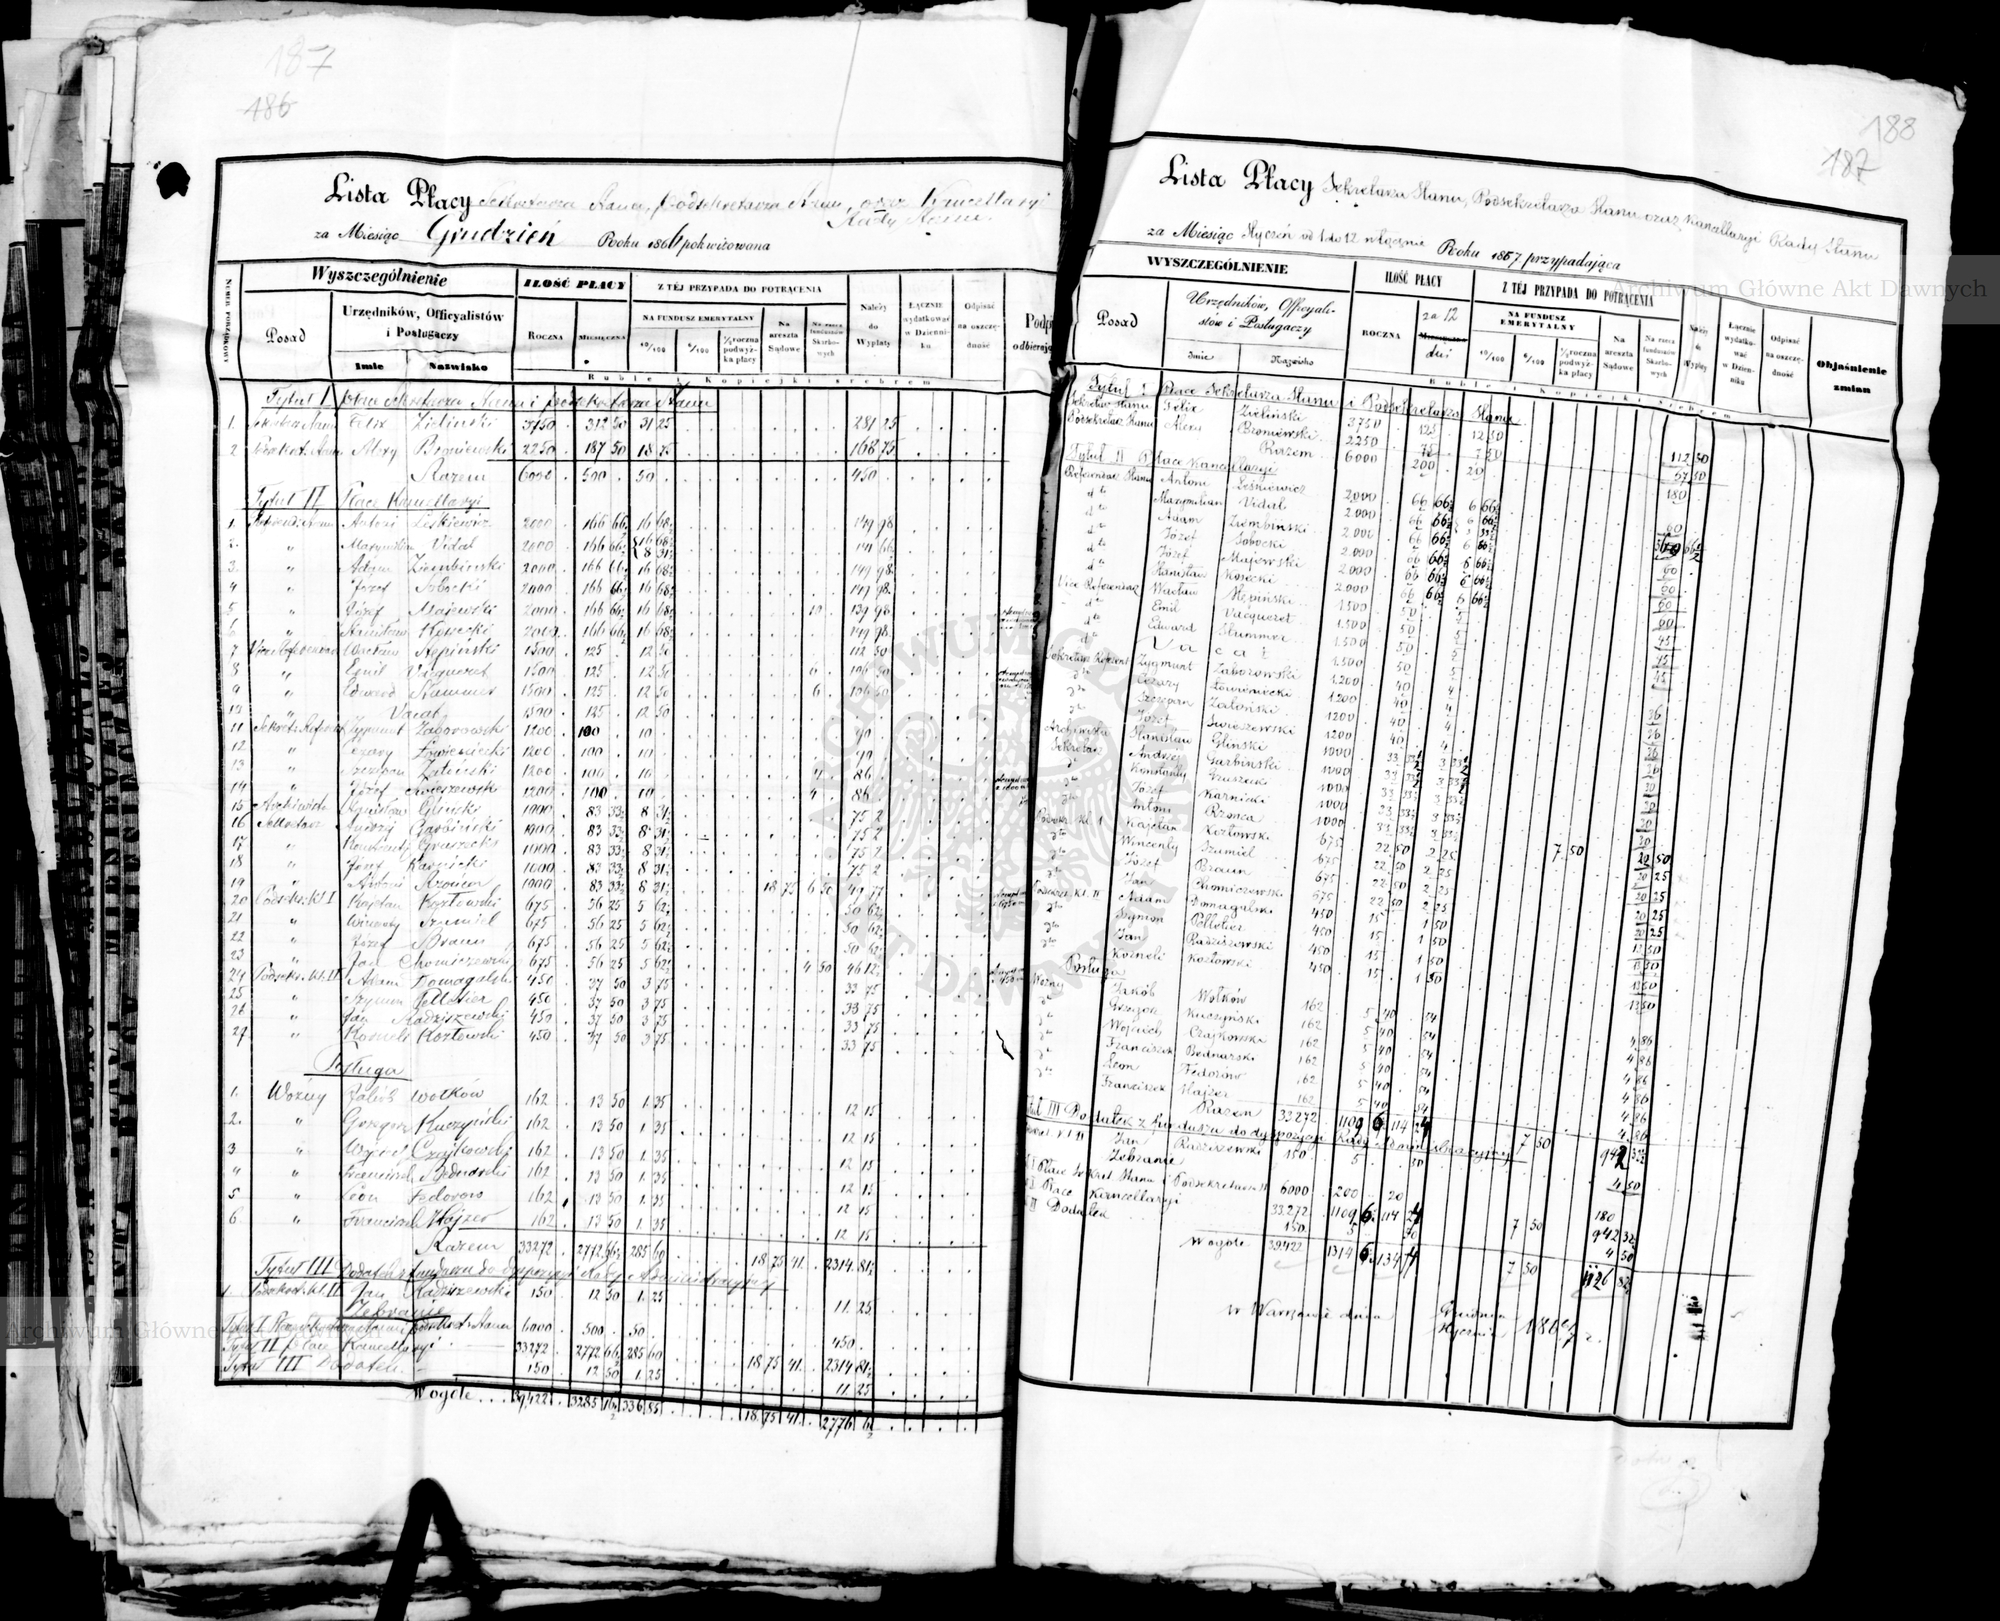 187
186
Lista Płacy Sekretarza Stanu, Podsekretarza Stanu, oraz Kancellaryi
Rady Stanu.
za Miesiąc Grudzień Roku 1866 pokwitowana
Numer porządkowy
Wyszczególnienie
ILOŚĆ PŁACY
Z TÉJ PRZYPADA DO POTRĄCENIA
Posad
Urzędników, Officyalistów i Posługaczy
Imie Nazwisko
Roczna Miesięczna
NA FUNDUSZ EMERYTALNY
10/100 6/100 1/2 roczna podwyżka płacy
Na areszta Sądowe
Na rzecz funduszów Skarbowych
Należy do Wypłaty
Łącznie wydatkować w Dzienniku
Odpisać na oszczędność
Ruble i Kopiejki srebrem
Tytuł I Płace Sekretarza Stanu i Podsekretarza Stanu
1. Sekretarz Stanu Felix Zieliński 3750 312 50 31 25 281 25
2 Podsekret. Stanu Alexy Broniewski 2250 187 50 18 75 168 75
Razem 6000 500 50 450
Tytuł II Płace Kancellaryi
1. Referendz. Stanu Antoni Leśkiewicz 2000 166 66½ 16 68½ 149 98
2. " Maxymilian Vidal 2000 166 66½ 16 68½ 8 31½ 141 66
3. " Adam Ziembiński 2000 166 66½ 16 68½ 149 98
4 " Józef Sobocki 2000 166 66½ 16 68½ 149 98
5 " Józef Majewski 2000 166 66½ 16 68½ 10 139 98
6 " Stanisław Korecki 2000 166 66½ 16 68½ 149 98
7 Vice Referendarz Wacław Stępiński 1500 125 12 50 112 50
8 " Emil Vacqueret 1500 125 12 50 6 106 50
9 " Edward Stummer 1500 125 12 50 6 106 50
10 " Vacat 1500 125 12 50
11 Sekret. Referent Zygmunt Zaborowski 1200 100 10 90
12 " Cezary Łowieniecki 1200 100 10 90
13 " Szczepan Zaleński 1200 100 10 4 86
14 " Józef Świeszewski 1200 100 10 4 86
15 Archiwista Stanisław Gliński 1000 83 33½ 8 31½ 75 2
16 Sekretarz Andrzej Garbiński 1000 83 33½ 8 31½ 75 2
17 " Konstanty Gruszecki 1000 83 33½ 8 31½ 75 2
18 " Józef Karnicki 1000 83 33½ 8 31½ 75 2
19 " Antoni Rzońca 1000 83 33½ 8 31½ 18 75 6 50 49 77
20 Podsekr. kl. I Kajetan Kozłowski 675 56 25 5 62½ 50 62½
21 " Wincenty Szumiel 675 56 25 5 62½ 50 62½
22 " Józef Braun 675 56 25 5 62½ 50 62½
23 " Jan Chomiczewski 675 56 25 5 62½ 4 50 46 12½
24 Podsekr. kl. II Adam Domagalski 450 37 50 3 75 33 75
25 " Szymon Pelletier 450 37 50 3 75 33 75
26 " Jan Radziszewski 450 37 50 3 75 33 75
27 " Korneli Kozłowski 450 37 50 3 75 33 75
Posługa
1. Woźny Jakób Wołków 162 13 50 1 35 12 15
2. " Grzegorz Kuczyński 162 13 50 1 35 12 15
3 " Wojciech Czajkowski 162 13 50 1 35 12 15
4 " Franciszek Bednarski 162 13 50 1 35 12 15
5 " Leon Fedorow 162 13 50 1 35 12 15
6 " Franciszek Hajzer 162 13 50 1 35 12 15
Razem 33272 2772 66½ 285 60 18 75 41 2314 81½
Tytuł III Dodatek z funduszu do dyspozycyi Rady Administracyjnej
1 Podsekret. kl. II Jan Radziszewski 150 12 50 1 25 11 25
Zebranie
Tytuł I Płace Sekretarza Stanu i Podsekret. Stanu 6000 500 50 450
Tytuł II Płace Kancellaryi 33272 2772 66½ 285 60 18 75 41 2314 81½
Tytuł III Dodatek 150 12 50 1 25 11 25
Wogóle 39422 3285 16½ 336 85 18 75 41 2776 6½
188
187
Lista Płacy Sekretarza Stanu, Podsekretarza Stanu oraz Kancellaryi Rady Stanu
za Miesiąc Styczeń od 1 do 12 włącznie Roku 1867 przypadająca
WYSZCZEGÓLNIENIE
ILOŚĆ PŁACY
Z TÉJ PRZYPADA DO POTRĄCENIA
Posad
Urzędników, Officyalistów i Posługaczy
Imie Nazwisko
ROCZNA za 12 dni
NA FUNDUSZ EMERYTALNY
10/100 6/100 1/2 roczna podwyżka płacy
Na areszta Sądowe
Na rzecz funduszów Skarbowych
Łącznie wydatkować w Dzienniku
Odpisać na oszczędność
Objaśnienie zmian
Ruble i Kopiejki Srebrem
Tytuł I Płace Sekretarza Stanu i Podsekretarza Stanu
Sekretarz Stanu Felix Zieliński 3750 125 12 50 112 50
Podsekretarz Stanu Alexy Broniewski 2250 75 7 50 67 50
Razem 6000 200 20 180
Tytuł II Płace Kancellaryi
Referendarz Stanu Antoni Leśkiewicz 2000 66 66½ 6 66½ 60
dto Maxymilian Vidal 2000 66 66½ 6 66½
dto Adam Ziembiński 2000 66 66½ 6 66½ 60
dto Józef Sobocki 2000 66 66½ 6 66½ 60
dto Józef Majewski 2000 66 66½ 6 66½ 60
dto Stanisław Korecki 2000 66 66½ 6 66½ 60
Vice Referendarz Wacław Stępiński 1500 50 5 45
dto Emil Vacqueret 1500 50 5 45
dto Edward Stummer 1500 50 5 45
dto Vacat 1500 50 5
Sekretarz Referent Zygmunt Zaborowski 1200 40 4 36
dto Cezary Łowieniecki 1200 40 4 36
dto Szczepan Zaleński 1200 40 4 36
dto Józef Świeszewski 1200 40 4 36
Archiwista Stanisław Gliński 1000 33 33½ 3 33½ 30
Sekretarz Andrzej Garbiński 1000 33 33½ 3 33½ 30
dto Konstanty Gruszecki 1000 33 33½ 3 33½ 30
dto Józef Karnicki 1000 33 33½ 3 33½ 30
dto Antoni Rzońca 1000 33 33½ 3 33½ 7 50 22 50
Podsekr. kl. I Kajetan Kozłowski 675 22 50 2 25 20 25
dto Wincenty Szumiel 675 22 50 2 25 20 25
dto Józef Braun 675 22 50 2 25 20 25
dto Jan Chomiczewski 675 22 50 2 25 20 25
Podsekr. kl. II Adam Domagalski 450 15 1 50 13 50
dto Szymon Pelletier 450 15 1 50 13 50
dto Jan Radziszewski 450 15 1 50 13 50
dto Korneli Kozłowski 450 15 1 50 13 50
Posługa
Woźny Jakób Wołków 162 5 40 54 4 86
dto Grzegorz Kuczyński 162 5 40 54 4 86
dto Wojciech Czajkowski 162 5 40 54 4 86
dto Franciszek Bednarski 162 5 40 54 4 86
dto Leon Fedorów 162 5 40 54 4 86
dto Franciszek Hajzer 162 5 40 54 4 86
Razem 33272 1109 6 114 24 7 50 942 32½
Tytuł III Dodatek z funduszu do dyspozycyi Rady Administracyjnej
Jan Radziszewski 150 5 50 4 50
Zebranie
Płace Sekret. Stanu i Podsekretarza St. 6000 200 20 180
Płace Kancellaryi 33272 1109 6 114 24 7 50 942 32½
Dodatek 150 5 50 4 50
Wogóle 39422 1314 6 134 74 7 50 1126 82½
w Warszawie dnia Grudnia / Stycznia 1866/7 r.
Archiwum Główne Akt Dawnych
ARCHIWUM GŁÓWNE AKT DAWNYCH
Archiwum Główne Akt Dawnych